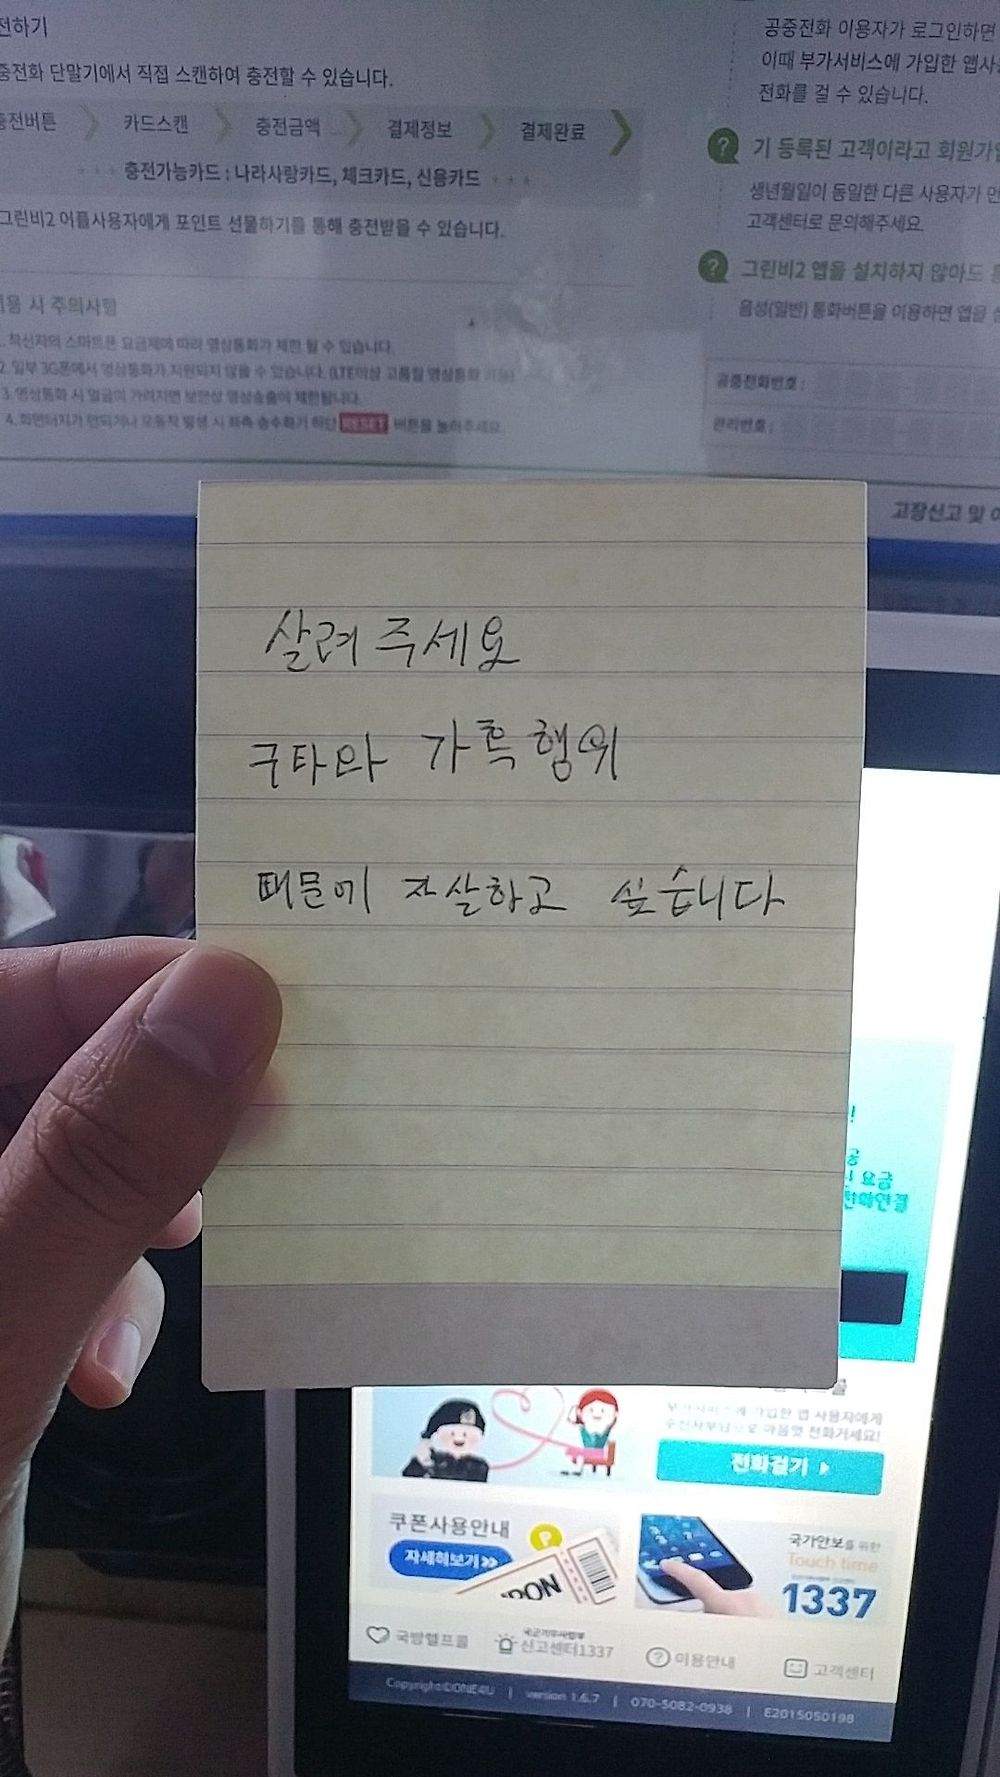 전하기
중전화 단말기에서 직접 스캔하여 충전할 수 있습니다.
충전버튼 카드스캔 충전금액 결제정보 결제완료
충전가능카드 : 나라사랑카드, 체크카드, 신용카드
그린비2 어플사용자에게 포인트 선물하기를 통해 충전받을 수 있습니다.
이용 시 주의사항
1. 착신자의 스마트폰 요금제에 따라 영상통화가 제한 될 수 있습니다.
2. 일부 3G폰에서 영상통화가 지원되지 않을 수 있습니다. (LTE이상 고품질 영상통화 가능)
3. 영상통화 시 얼굴이 가려지면 보안상 영상송출이 제한됩니다.
4. 화면터치가 안되거나 오동작 발생 시 좌측 송수화기 하단 RESET 버튼을 눌러주세요.
공중전화 이용자가 로그인하면
이때 부가서비스에 가입한 앱사
전화를 걸 수 있습니다.
? 기 등록된 고객이라고 회원가입
생년월일이 동일한 다른 사용자가 먼
고객센터로 문의해주세요.
? 그린비2 앱을 설치하지 않아도
음성(일반) 통화버튼을 이용하면 앱을
공중전화번호 :
관리번호 :
고장신고 및
살려주세요
구타와 가혹행위
때문에 자살하고 싶습니다
요금
전화연결
가입한 앱 사용자에게
마음껏 전화거세요!
전화걸기
쿠폰사용안내
자세히보기
국가안보를 위한
Touch time
1337
국방헬프콜
국군기무사령부
신고센터1337
이용안내
고객센터
Copyright©ONE4U | version 1.6.7 | 070-5082-0938 | E2015050198